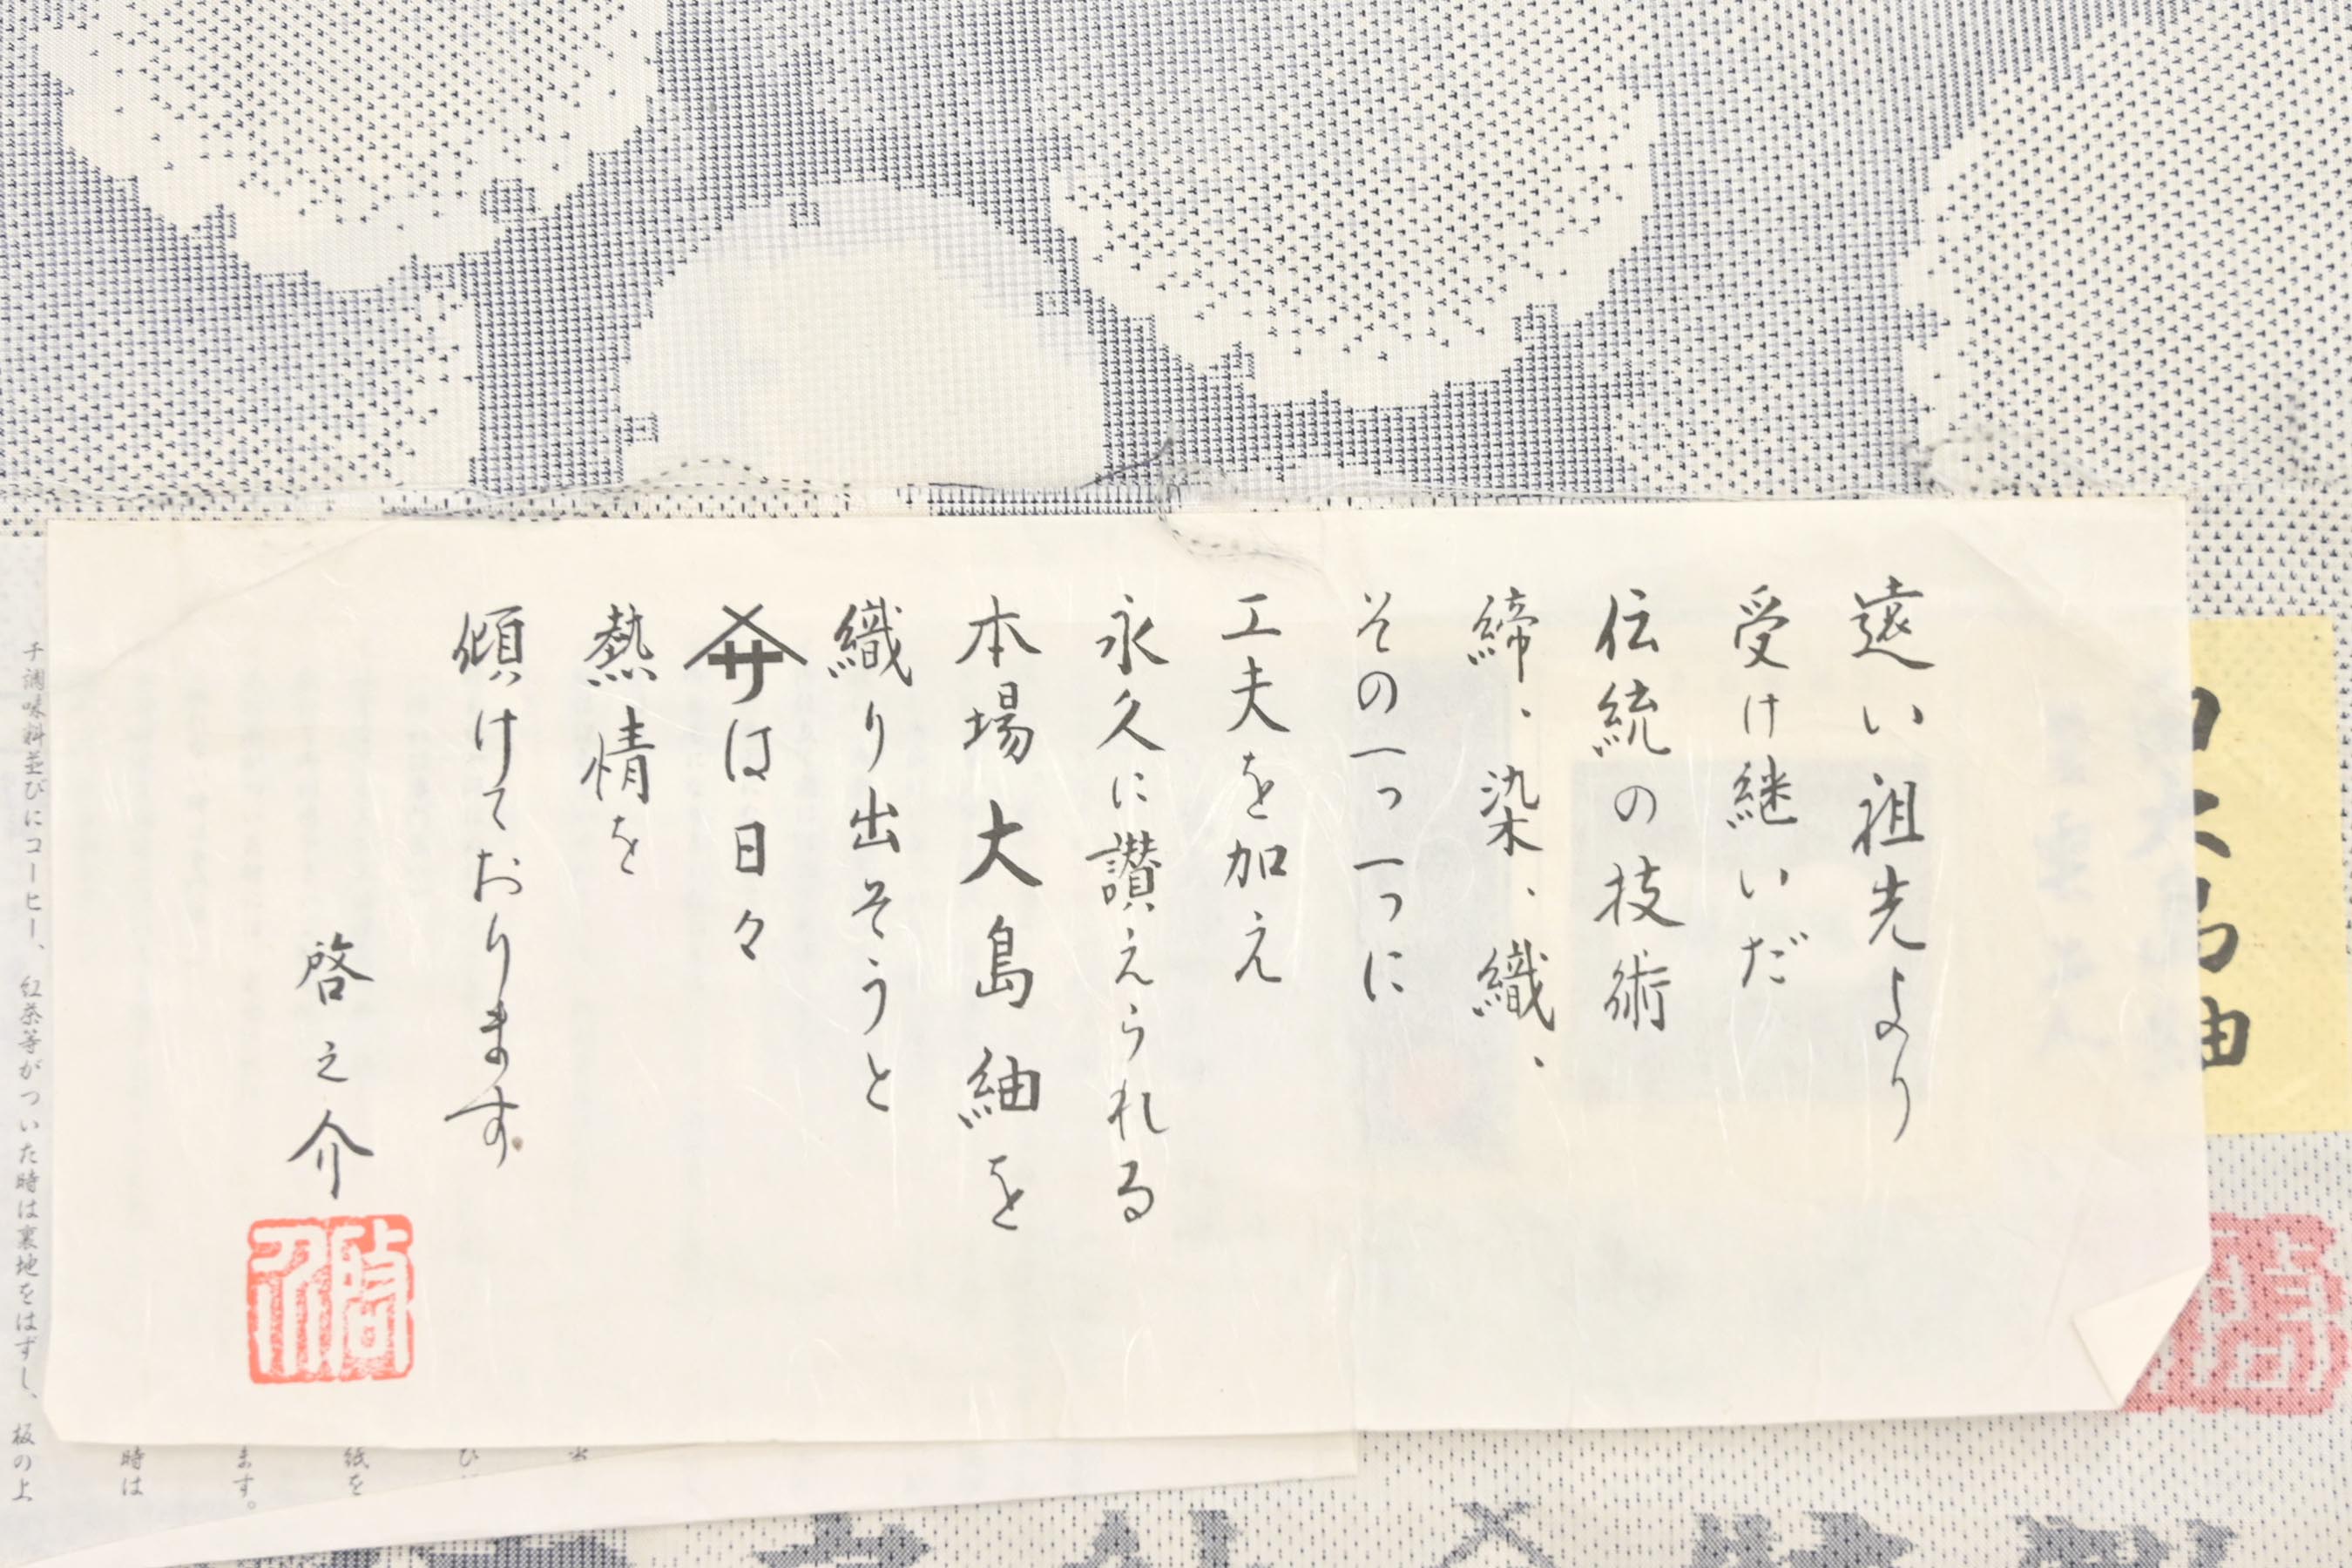 遠い祖先より
受け継いだ
伝統の技術
締、染、織、
その一つ一つに
工夫を加え
永久に讃えられる
本場大島紬を
織り出そうと
は日々
熱情を
傾けております。
啓之介
啓介
チ調味料並びにコーヒー、紅茶等がついた時は裏地をはずし、板の上
時は
ます。
紙を
ひ